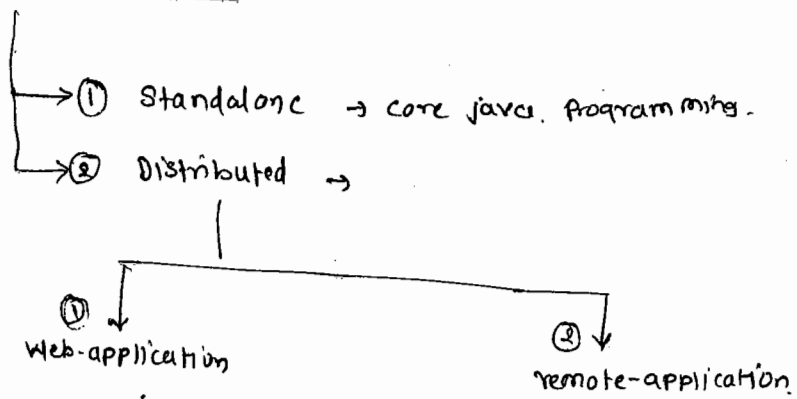 ① Standalone → core java. Programming.
② Distributed →
① Web-application
② remote-application.